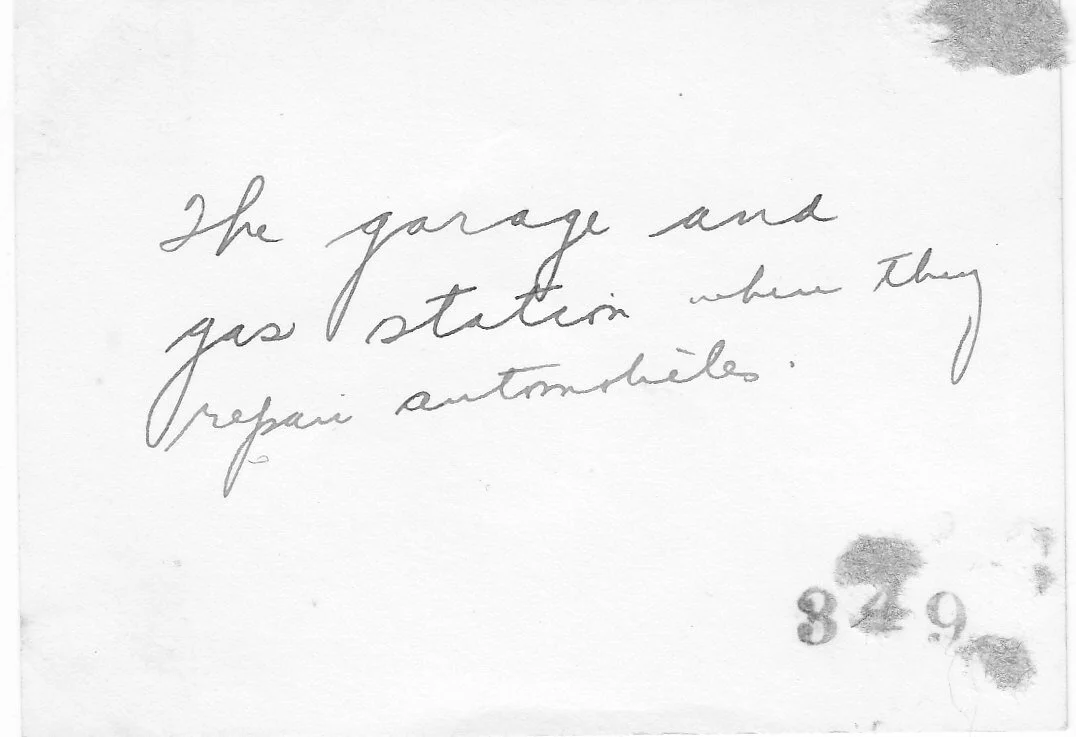 The garage and
gas station where they
repair automobiles.
349